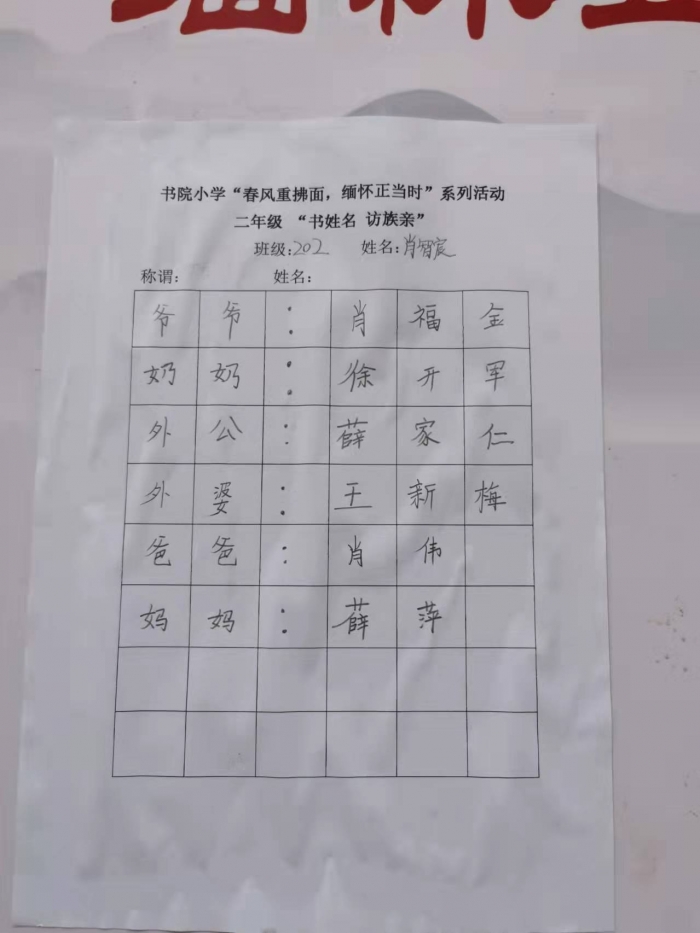 书院小学“春风重拂面，缅怀正当时”系列活动
二年级 “书姓名 访族亲”
班级:202 姓名:肖智宸
称谓: 姓名:
爷爷:肖福金
奶奶:徐开军
外公:薛家仁
外婆:王新梅
爸爸:肖伟
妈妈:薛萍